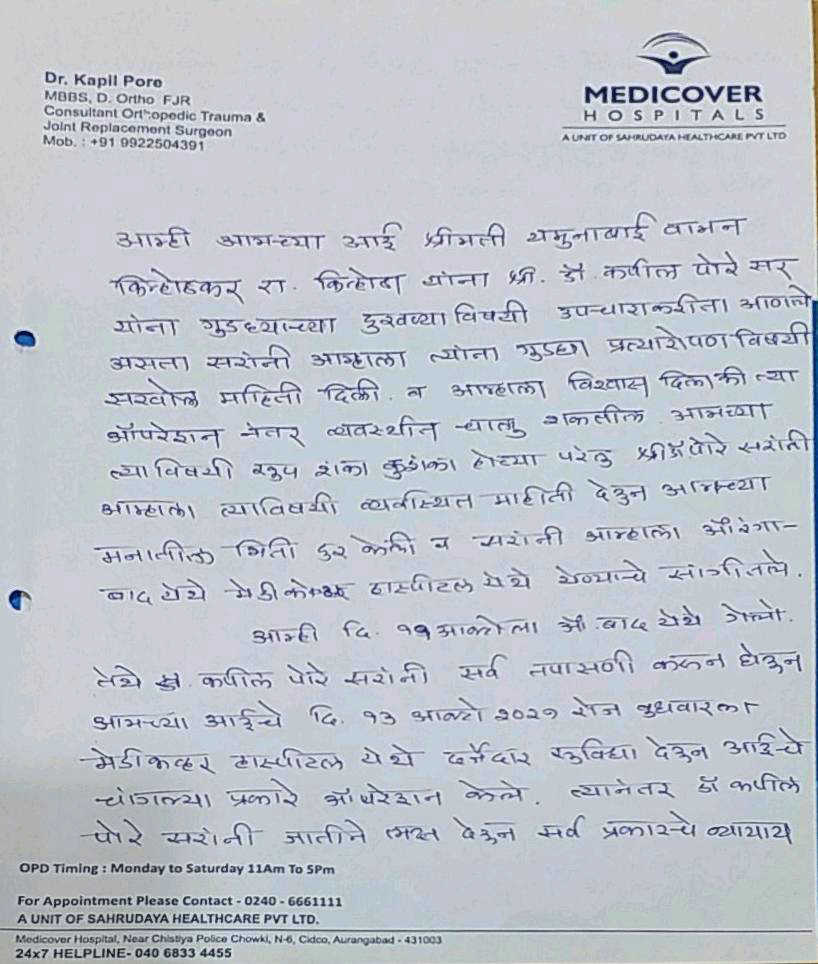 Dr. Kapil Pore
MBBS, D. Ortho FJR
Consultant Orthopedic Trauma &
Joint Replacement Surgeon
Mob. : +91 9922504391
MEDICOVER
HOSPITALS
A UNIT OF SAHRUDAYA HEALTHCARE PVT LTD
आम्ही आमच्या आई श्रीमती यमुनाबाई वामन
किन्होळकर रा. किन्होळा यांना श्री. डॉ. कपील पोरे सर
यांना गुडध्याच्या दुखण्याविषयी उपचाराकरीता आणले
असता सरांनी आम्हाला त्यांना गुडघा प्रत्यारोपण विषयी
सखोल माहिती दिली. व आम्हाला विश्वास दिला की त्या
ऑपरेशन नंतर व्यवस्थीत चालु शकतील. आमच्या
त्याविषयी खुप शंका कुशंका होत्या परंतु श्री डॉ पोरे सरांनी
आम्हाला त्याविषयी व्यवस्थित माहीती देवुन आमच्या
मनातील भिती दुर केली व सरांनी आम्हाला औरंगा-
बाद येथे मेडीकव्हर हास्पीटल येथे येण्याचे सांगीतले.
आम्ही दि. ११ आक्टोला औ. बाद येथे गेलो.
तेथे डॉ. कपील पोरे सरांनी सर्व तपासणी करून घेवुन
आमच्या आईचे दि. १३ आक्टो २०२१ रोज बुधवारला
मेडीकव्हर हास्पीटल येथे दर्जेदार सुविधा देवुन आईचे
चांगल्या प्रकारे ऑपरेशन केले. त्यानंतर डॉ कपील
पोरे सरांनी जातीने लक्ष देवुन सर्व प्रकारचे व्यायाय
OPD Timing : Monday to Saturday 11Am To 5Pm
For Appointment Please Contact - 0240 - 6661111
A UNIT OF SAHRUDAYA HEALTHCARE PVT LTD.
Medicover Hospital, Near Chistiya Police Chowki, N-6, Cidco, Aurangabad - 431003
24x7 HELPLINE- 040 6833 4455